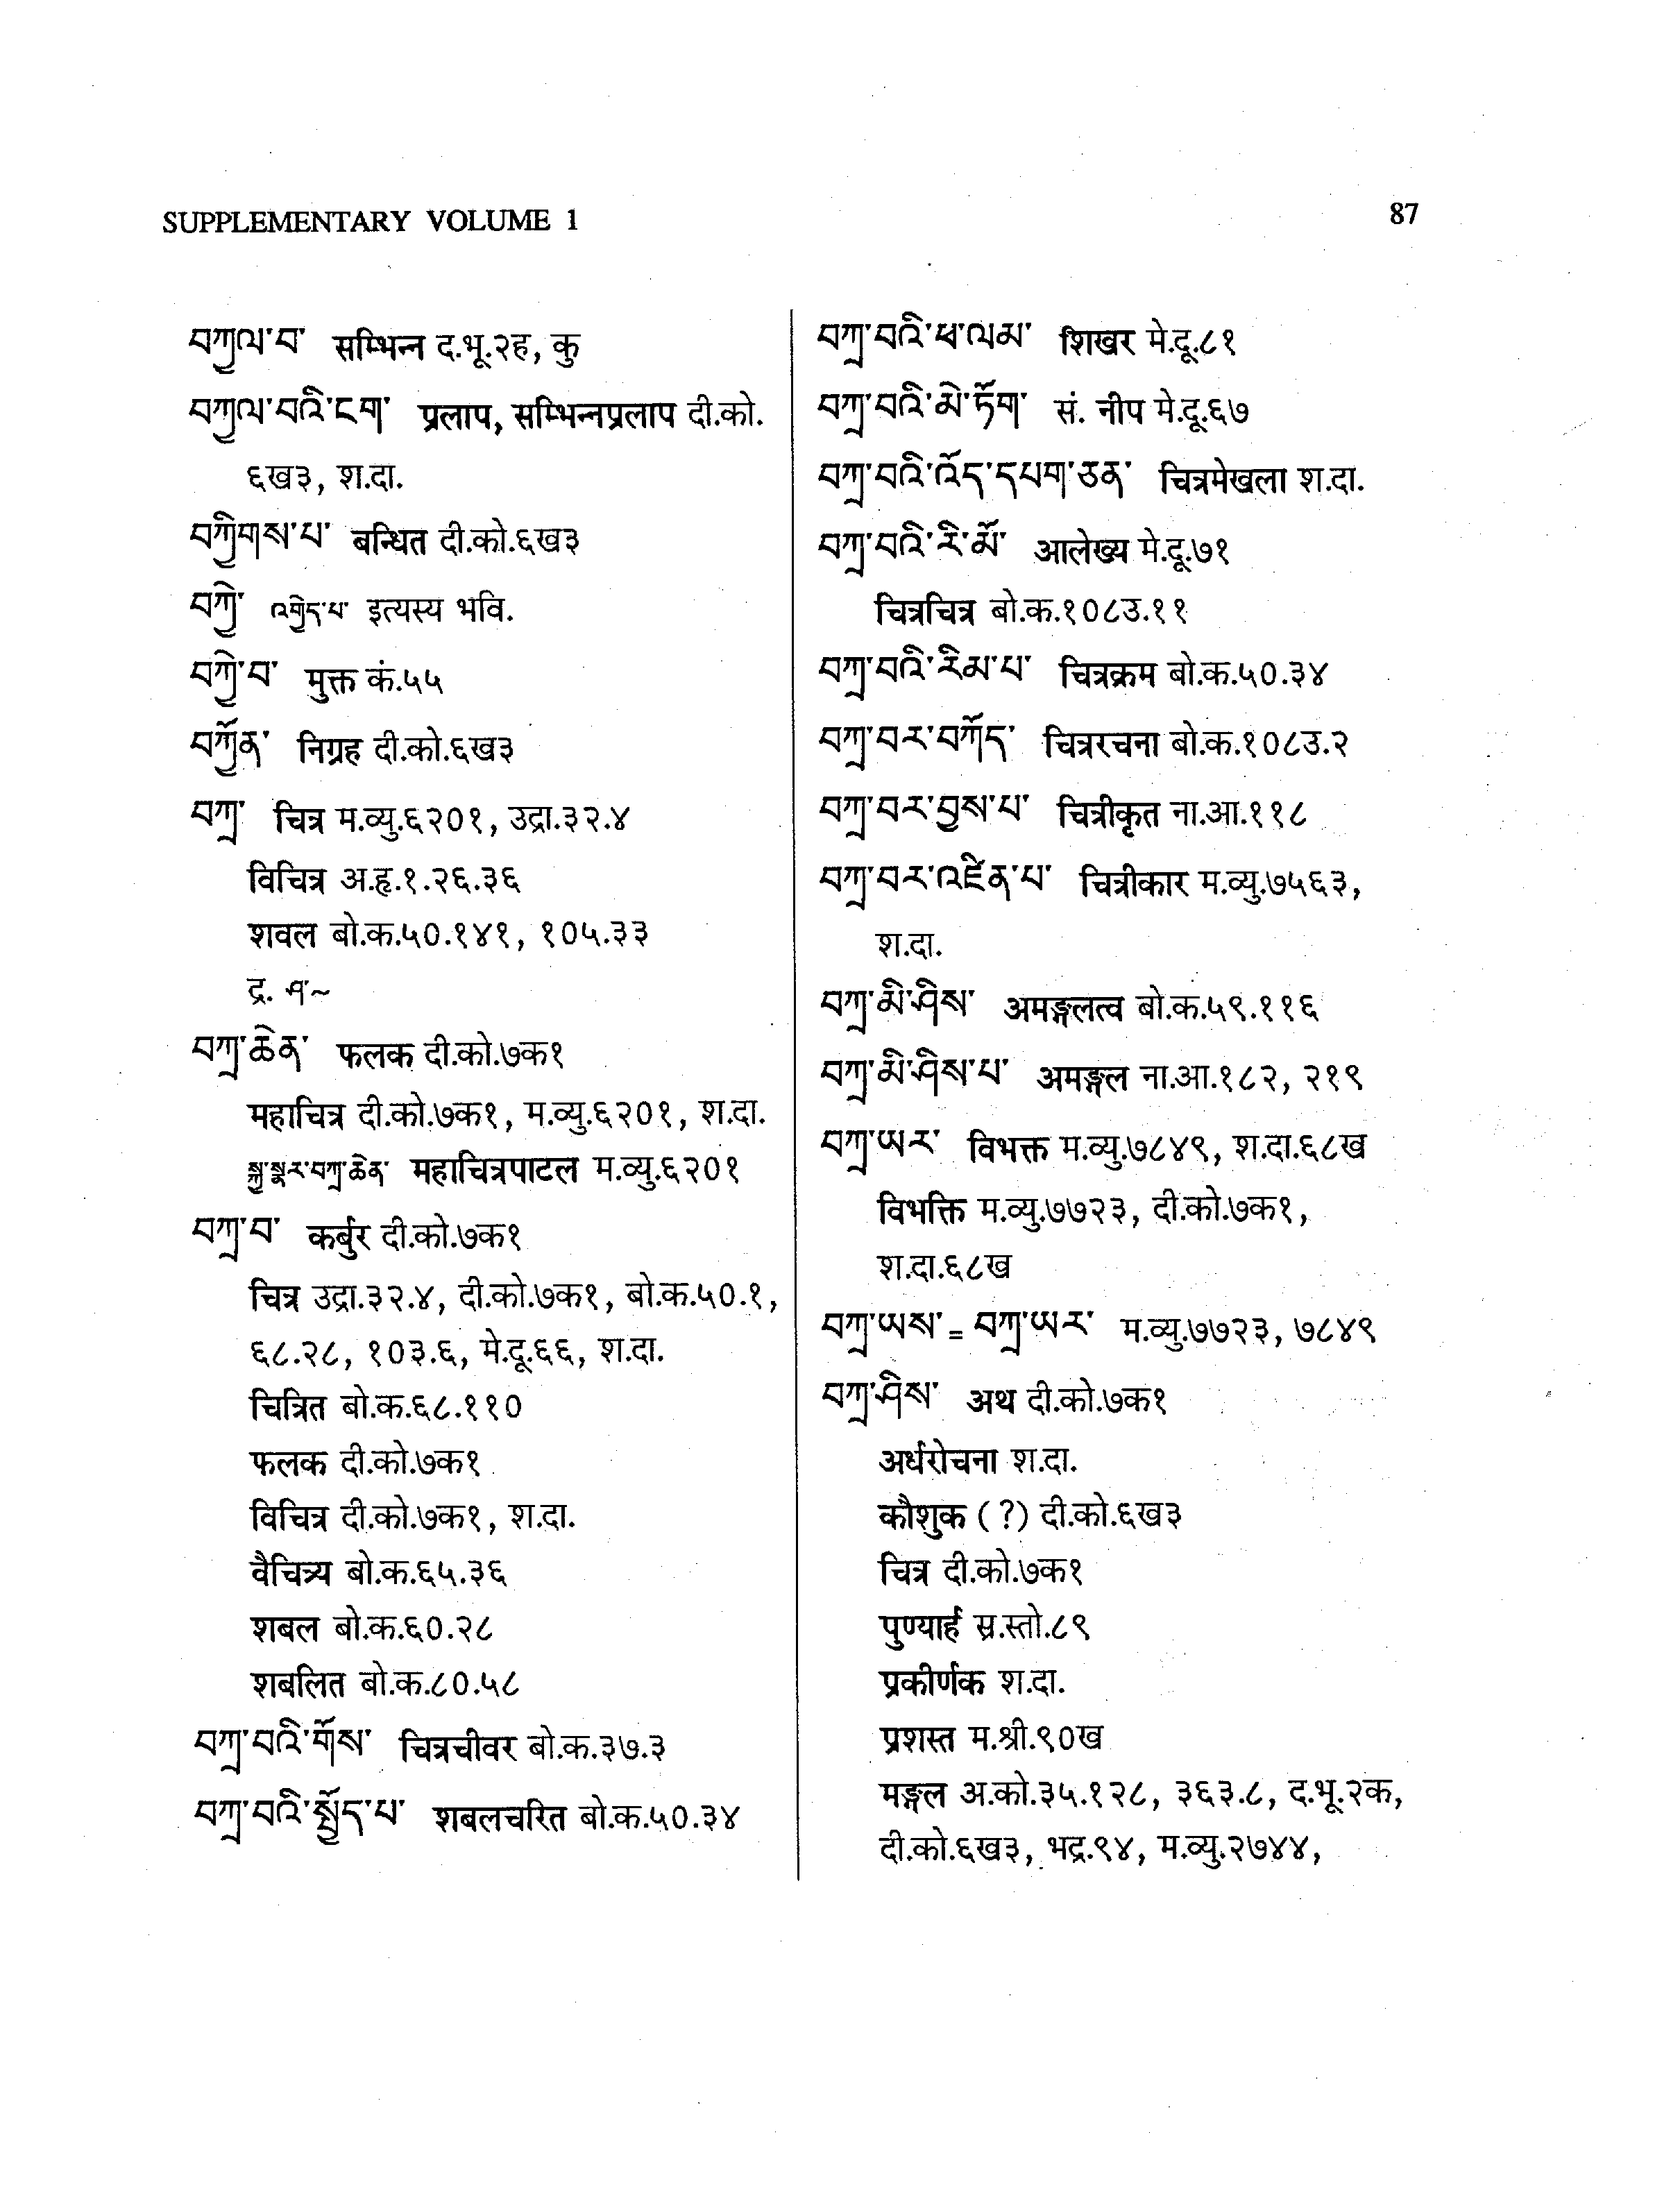 SUPPLEMENTARY VOLUME 1
87
བཀྱལ་བ་ सम्भिन्न द.भू.२ह, कु
བཀྱལ་བའི་ངག་ प्रलाप, सम्भिन्नप्रलाप दी.को.
६ख३, श.दा.
བཀྱིགས་པ་ बन्धित दी.को.६ख३
བཀྱེ་ འགྱེད་པ་ इत्यस्य भवि.
བཀྱེ་བ་ मुक्त कं.५५
བཀྱོན་ निग्रह दी.को.६ख३
བཀྲ་ चित्र म.व्यु.६२०१, उद्रा.३२.४
विचित्र अ.हृ.१.२६.३६
शवल बो.क.५०.१४१, १०५.३३
द्र. ཤ་~
བཀྲ་ཆེན་ फलक दी.को.७क१
महाचित्र दी.को.७क१, म.व्यु.६२०१, श.दा.
སྐྱ་སྣར་བཀྲ་ཆེན་ महाचित्रपाटल म.व्यु.६२०१
བཀྲ་བ་ कर्बुर दी.को.७क१
चित्र उद्रा.३२.४, दी.को.७क१, बो.क.५०.१,
६८.२८, १०३.६, मे.दू.६६, श.दा.
चित्रित बो.क.६८.११०
फलक दी.को.७क१
विचित्र दी.को.७क१, श.दा.
वैचित्र्य बो.क.६५.३६
शबल बो.क.६०.२८
शबलित बो.क.८०.५८
བཀྲ་བའི་གོས་ चित्रचीवर बो.क.३७.३
བཀྲ་བའི་སྤྱོད་པ་ शबलचरित बो.क.५०.३४
བཀྲ་བའི་ཕ་ལམ་ शिखर मे.दू.८१
བཀྲ་བའི་མེ་ཏོག་ सं. नीप मे.दू.६७
བཀྲ་བའི་འོད་དཔག་ཅན་ चित्रमेखला श.दा.
བཀྲ་བའི་རི་མོ་ आलेख्य मे.दू.७१
चित्रचित्र बो.क.१०८उ.११
བཀྲ་བའི་རིམ་པ་ चित्रक्रम बो.क.५०.३४
བཀྲ་བར་བཀོད་ चित्ररचना बो.क.१०८उ.२
བཀྲ་བར་བྱས་པ་ चित्रीकृत ना.आ.११८
བཀྲ་བར་འཛིན་པ་ चित्रीकार म.व्यु.७५६३,
श.दा.
བཀྲ་མི་ཤིས་ अमङ्गलत्व बो.क.५९.११६
བཀྲ་མི་ཤིས་པ་ अमङ्गल ना.आ.१८२, २१९
བཀྲ་ཡར་ विभक्त म.व्यु.७८४९, श.दा.६८ख
विभक्ति म.व्यु.७७२३, दी.को.७क१,
श.दा.६८ख
བཀྲ་ཡས་ = བཀྲ་ཡར་ म.व्यु.७७२३, ७८४९
བཀྲ་ཤིས་ अथ दी.को.७क१
अर्धरोचना श.दा.
कौशुक (?) दी.को.६ख३
चित्र दी.को.७क१
पुण्यार्ह स्र.स्तो.८९
प्रकीर्णक श.दा.
प्रशस्त म.श्री.९०ख
मङ्गल अ.को.३५.१२८, ३६३.८, द.भू.२क,
दी.को.६ख३, भद्र.९४, म.व्यु.२७४४,